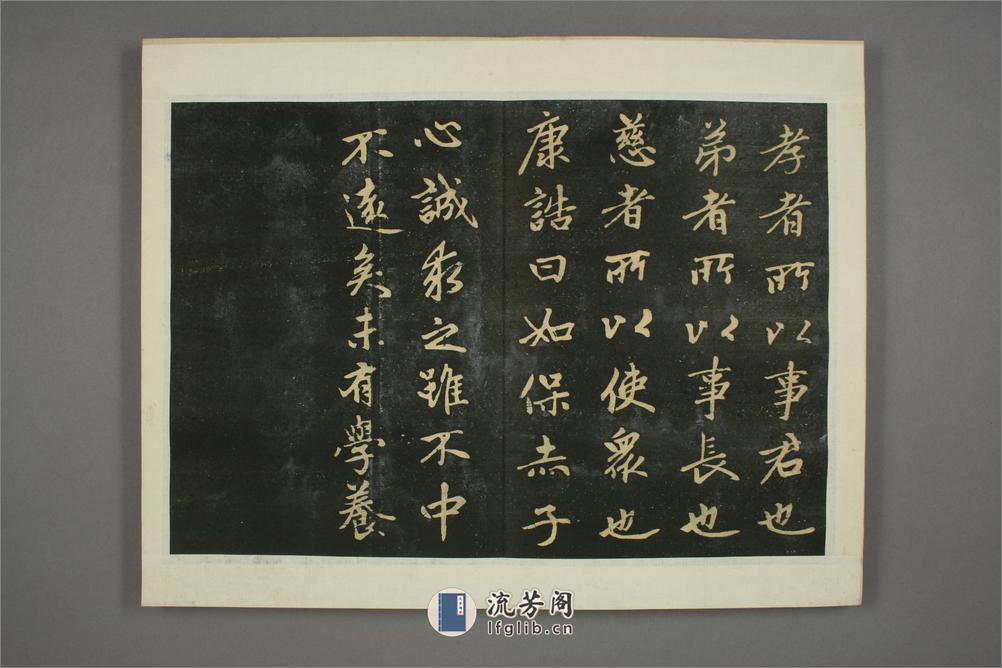 孝者所以事君也
弟者所以事長也
慈者所以使衆也
康誥曰如保赤子
心誠求之雖不中
不遠矣未有學養
流芳阁
lfglib.cn